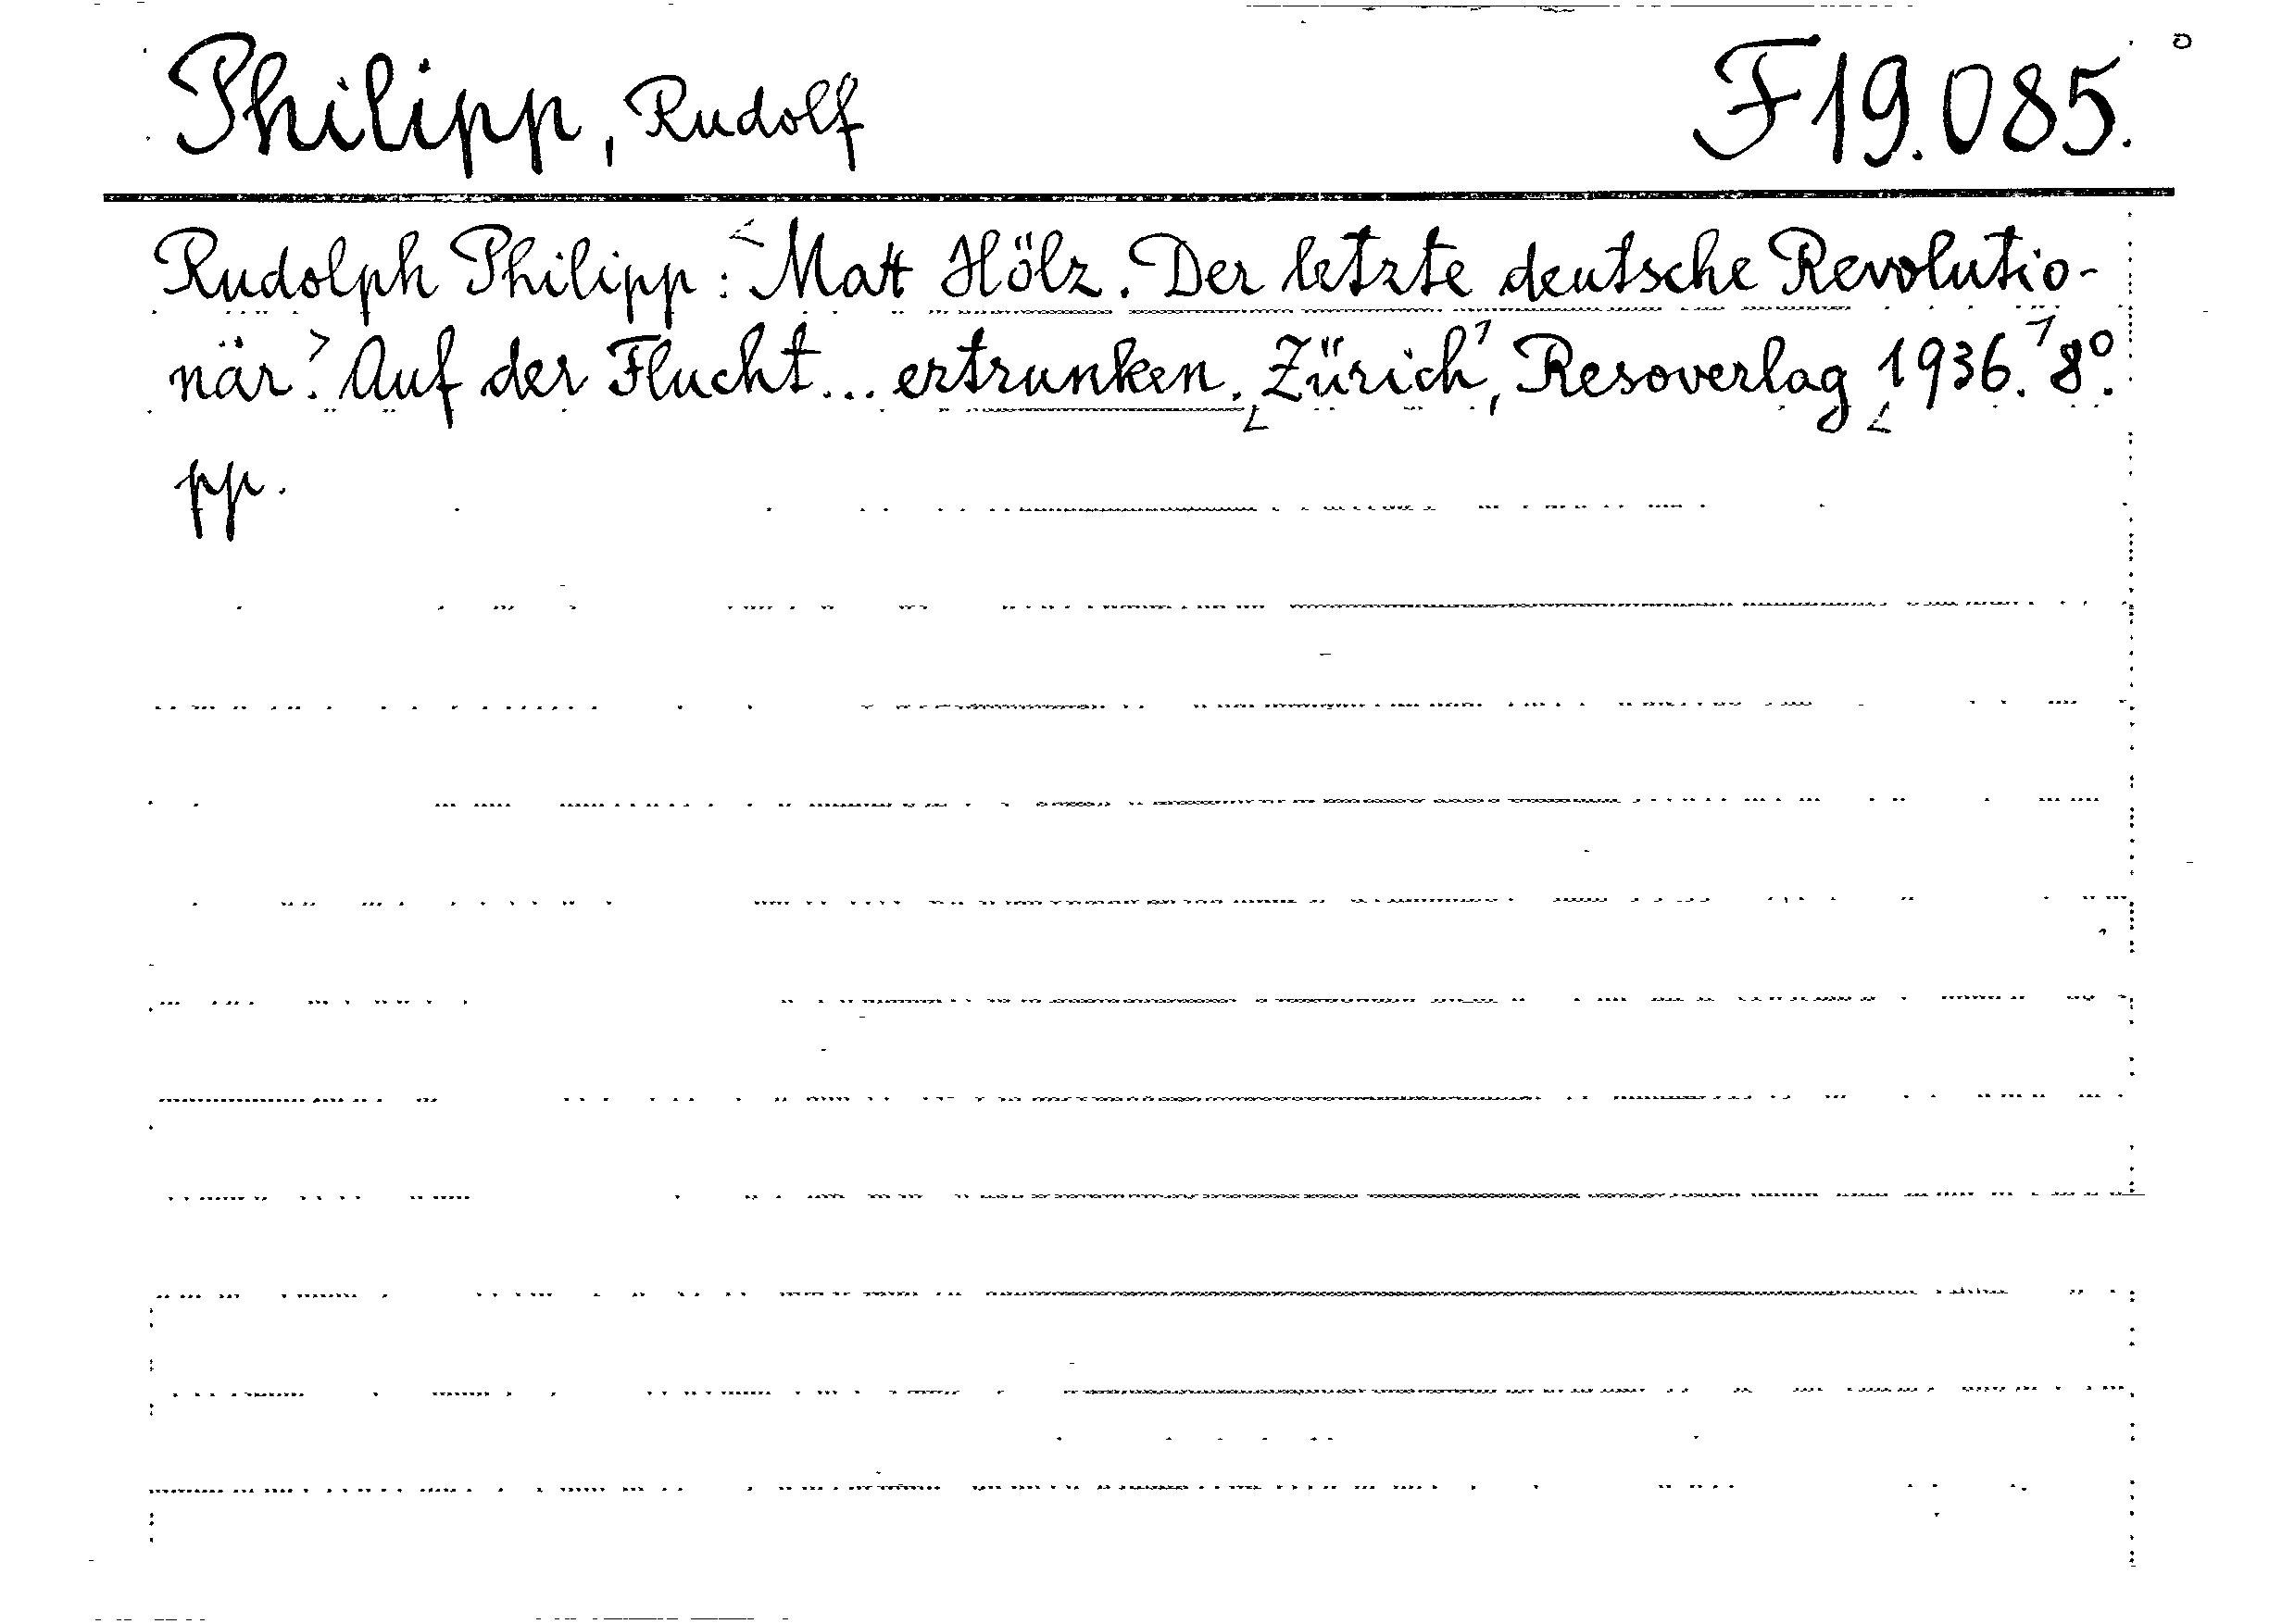 Philipp, Rudolf F19.085.
Rudolph Philipp: Matt Hölz. Der letzte deutsche Revolutio-
när. Auf der Flucht... ertrunken. Zürich, Resoverlag 1936. 8°.
pp.